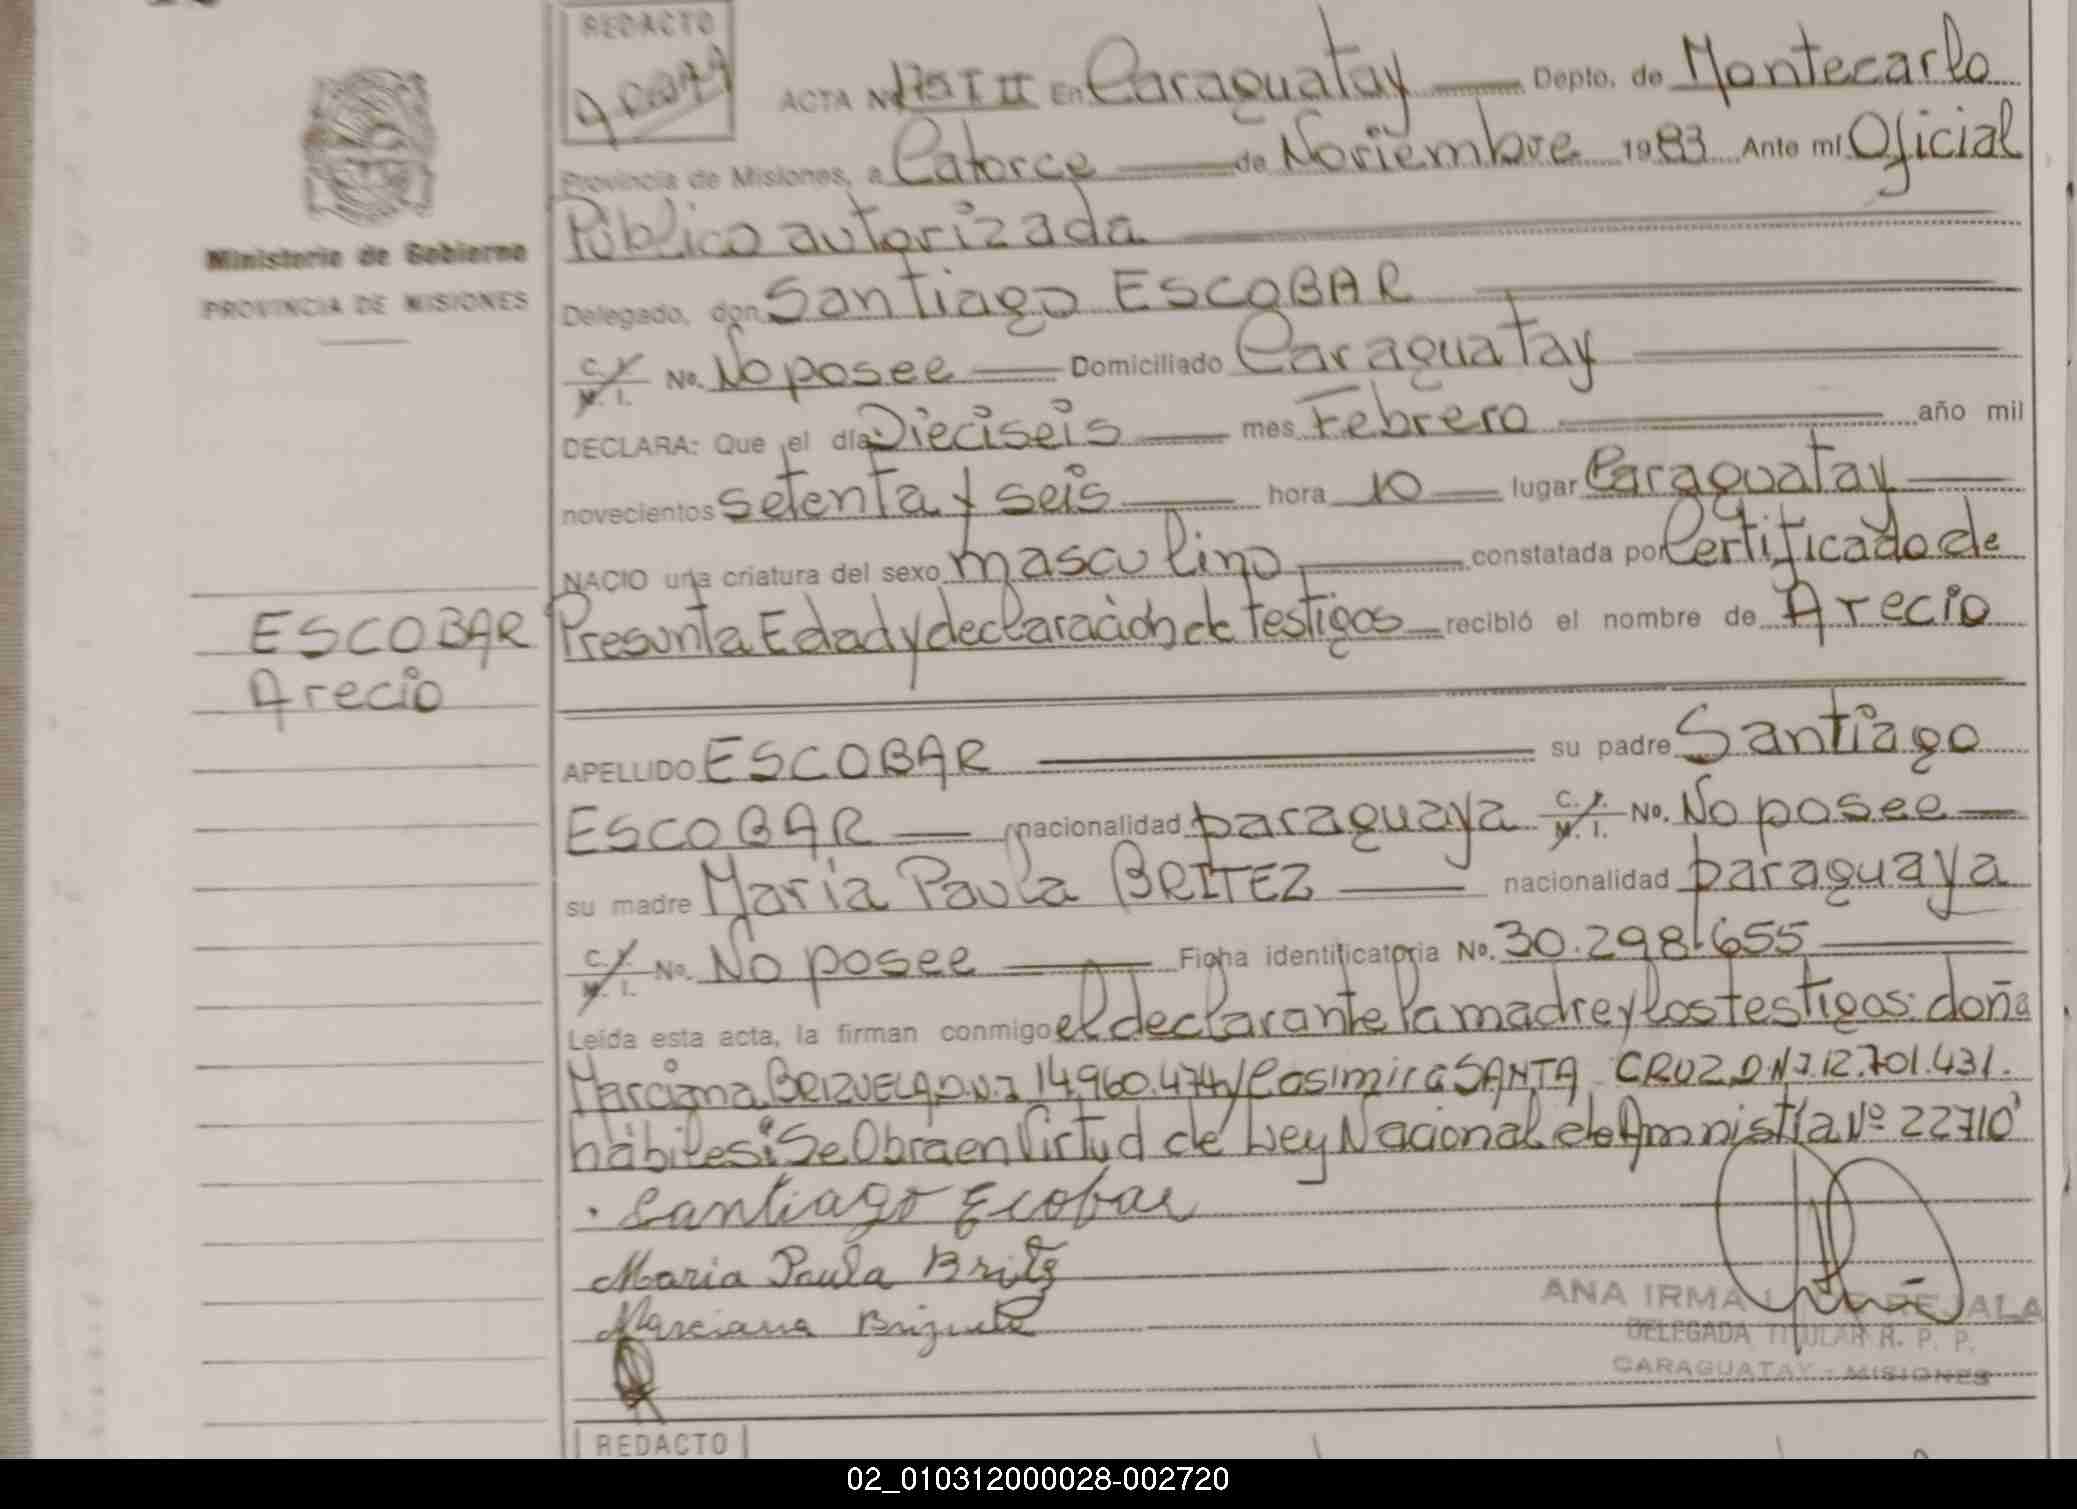 REDACTO
ACTA Nº 175 T II En Caraguatay Depto. de Montecarlo
Provincia de Misiones, a Catorce de Noviembre 1983 Ante mí Oficial
Público autorizada
Ministerio de Gobierno
PROVINCIA DE MISIONES
Delegado, don Santiago ESCOBAR
C. I. / M. I. No. No posee Domiciliado Caraguatay
DECLARA: Que el día Dieciseis mes Febrero año mil
novecientos setenta y seis hora 10 lugar Caraguatay
NACIO una criatura del sexo masculino constatada por Certificado de
Presunta Edad y declaración de testigos recibió el nombre de Arecio
ESCOBAR
Arecio
APELLIDO ESCOBAR su padre Santiago
ESCOBAR nacionalidad paraguaya C. I. / M. I. No. No posee
su madre María Paula BRITEZ nacionalidad paraguaya
C. I. / M. I. No. No posee Ficha identificatoria No. 30.298.655
Leída esta acta, la firman conmigo el declarante la madre y los testigos: doña
Marciana BRIZUELA D.N.I 14.960.474 y Casimira SANTA CRUZ D.N.I. 12.701.431.
hábiles; Se Obra en Virtud de Ley Nacional de Amnistía Nº 22710
Santiago Escobar
Maria Paula Britez
Marciana Brizuela
ANA IRMA
DELEGADA TITULAR R. P. P.
CARAGUATAY - MISIONES
REDACTO
02_010312000028-002720